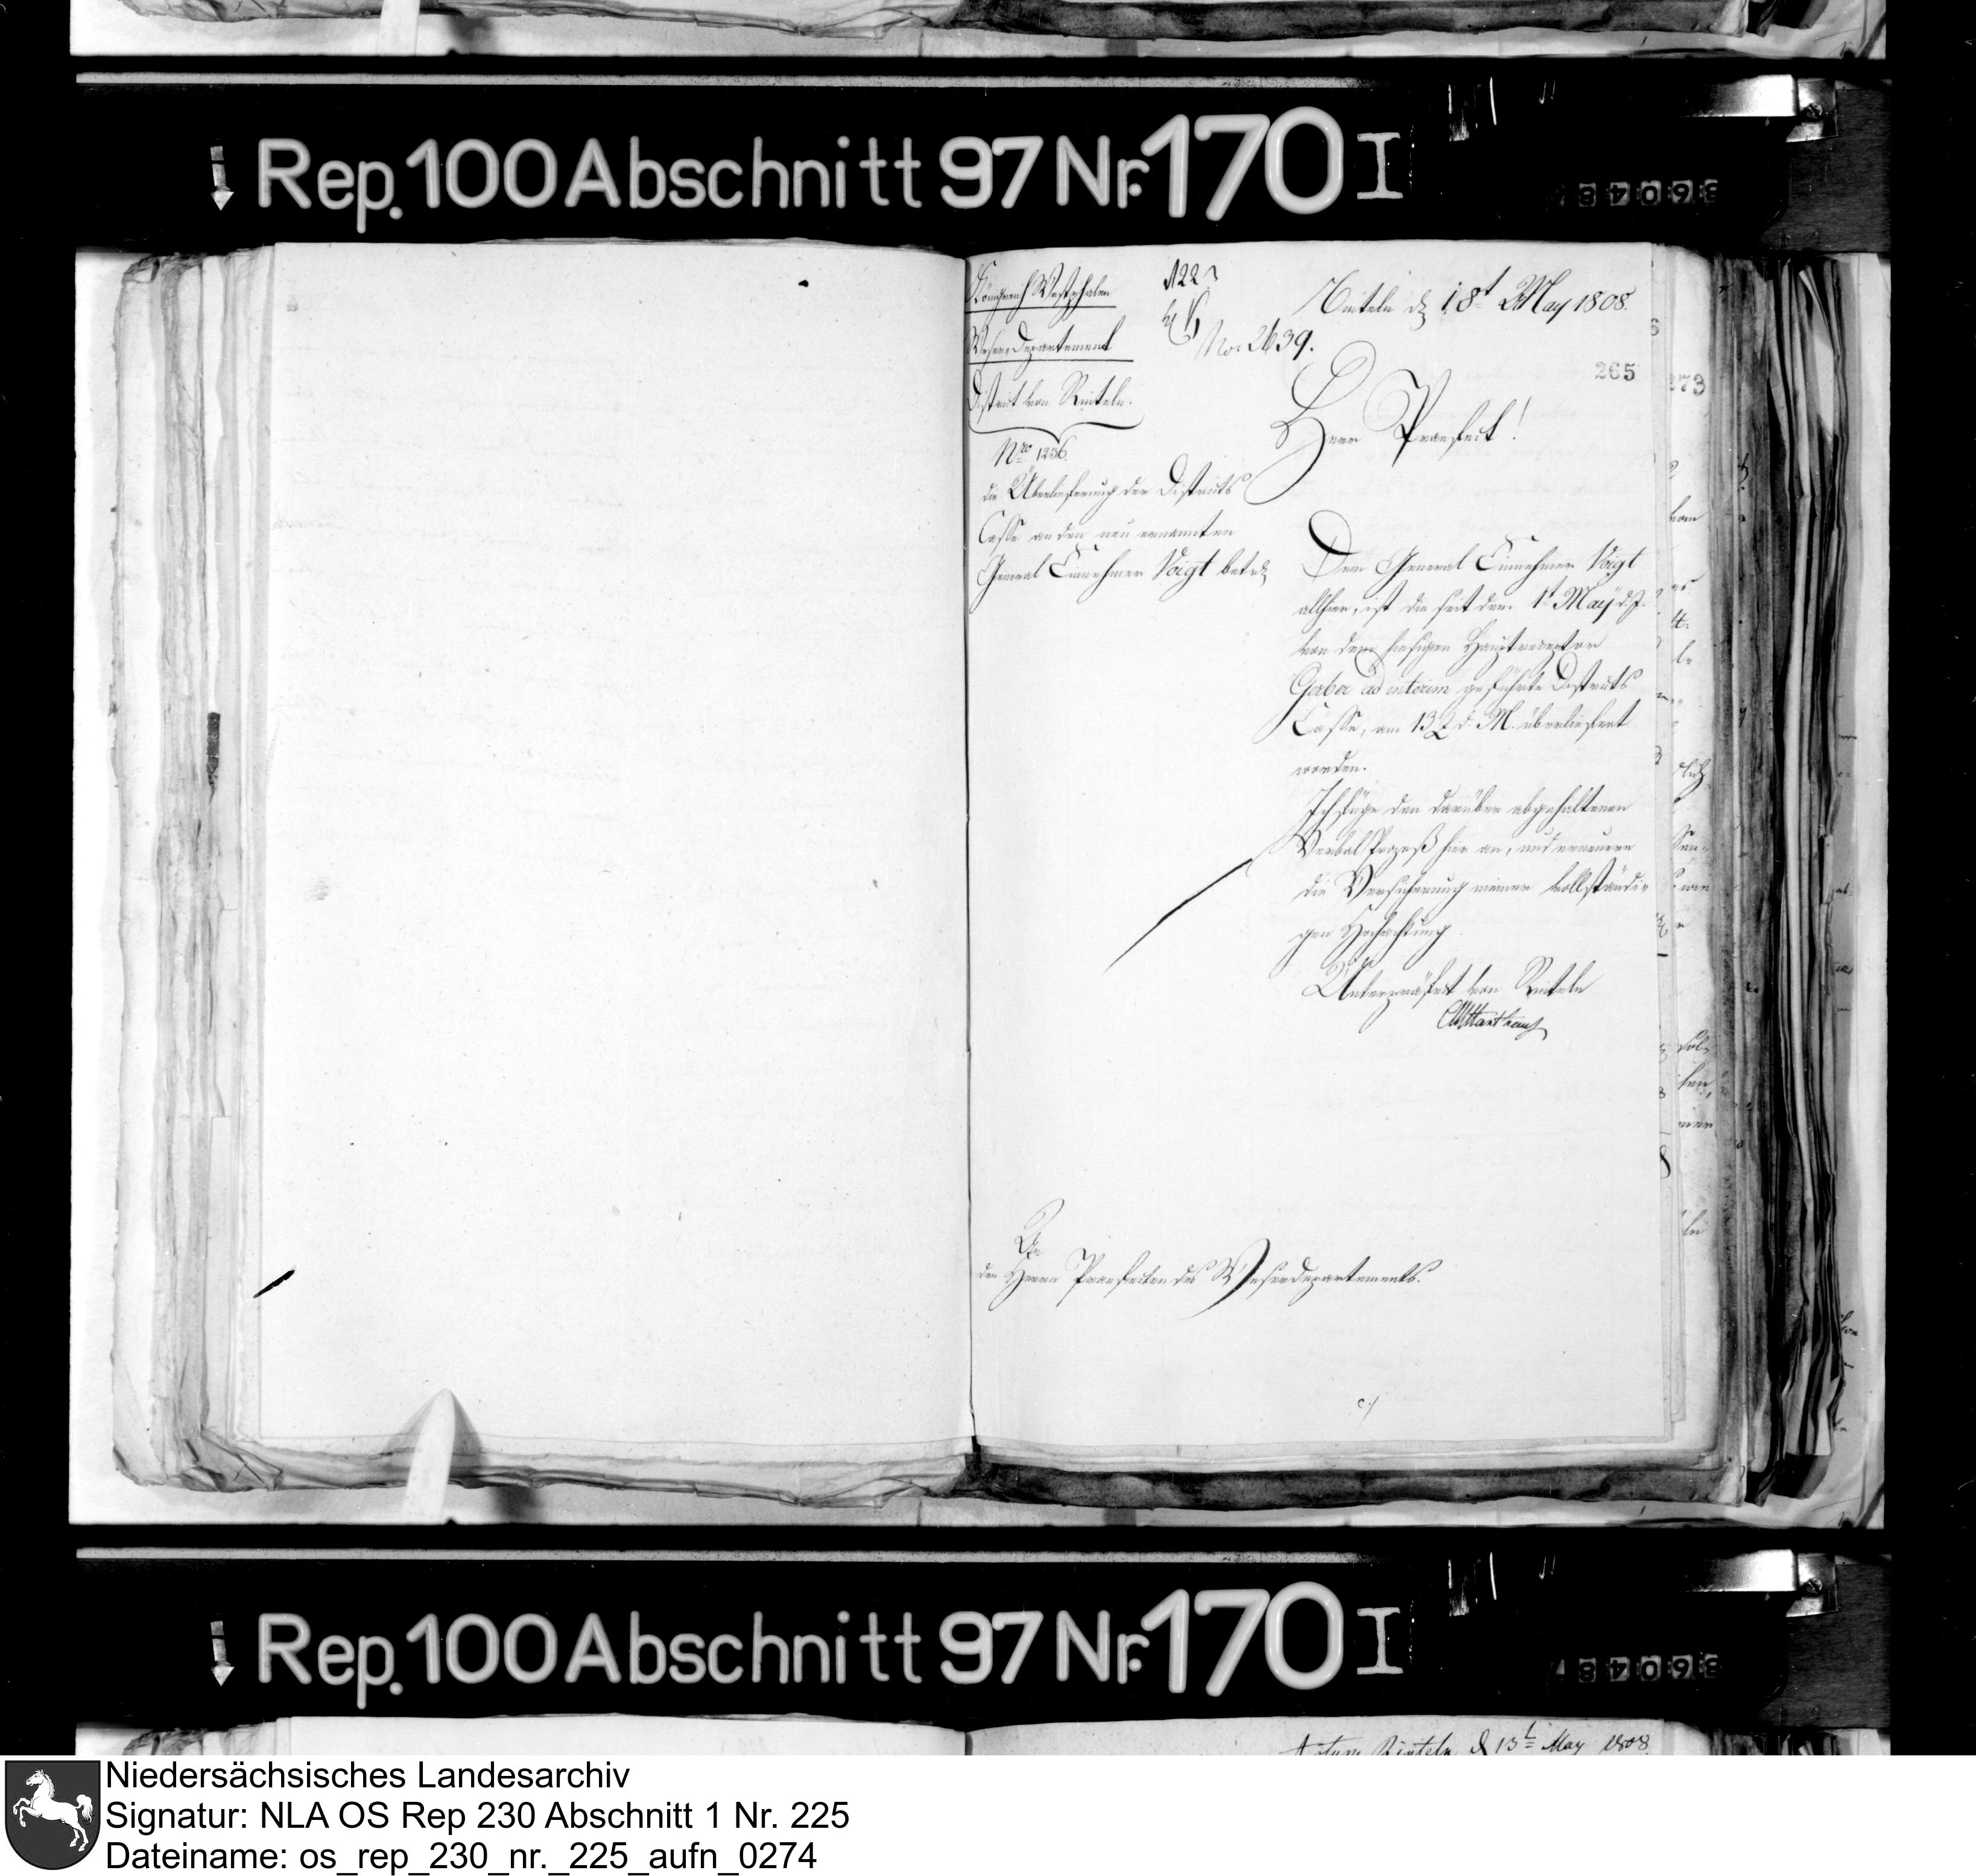 Rep. 100 Abschnitt 97 Nr. 170 I
36048
Königreich Westphalen
Weser Departement
District von Rinteln.
Nro 1236.
die Überlieferung der Districts
Casse an den neu ernannten
General Einnehmer Voigt betr.
No. 2639.
Rinteln d 18t May 1808.
265
273
Herr Praefect!
Dem General Einnehmer Voigt
allhier, ist die seit dem 1t May d. J.
von dem hiesigen Hauptreceptor
Gerber ad interim geführte Districts
Casse, am 13 d. M. überliefert
worden.
Ich füge den darüber abgehaltenen
Verbal Prozeß hier an, und erneuere
die Versicherung meiner vollständi-
gen Hochachtung
Unterpräfect von Rinteln
An
den Herrn Praefecten des Weserdepartements.
Rep. 100 Abschnitt 97 Nr. 170 I
36048
Actum Rinteln d 13t May 1808
Niedersächsisches Landesarchiv
Signatur: NLA OS Rep 230 Abschnitt 1 Nr. 225
Dateiname: os_rep_230_nr._225_aufn_0274